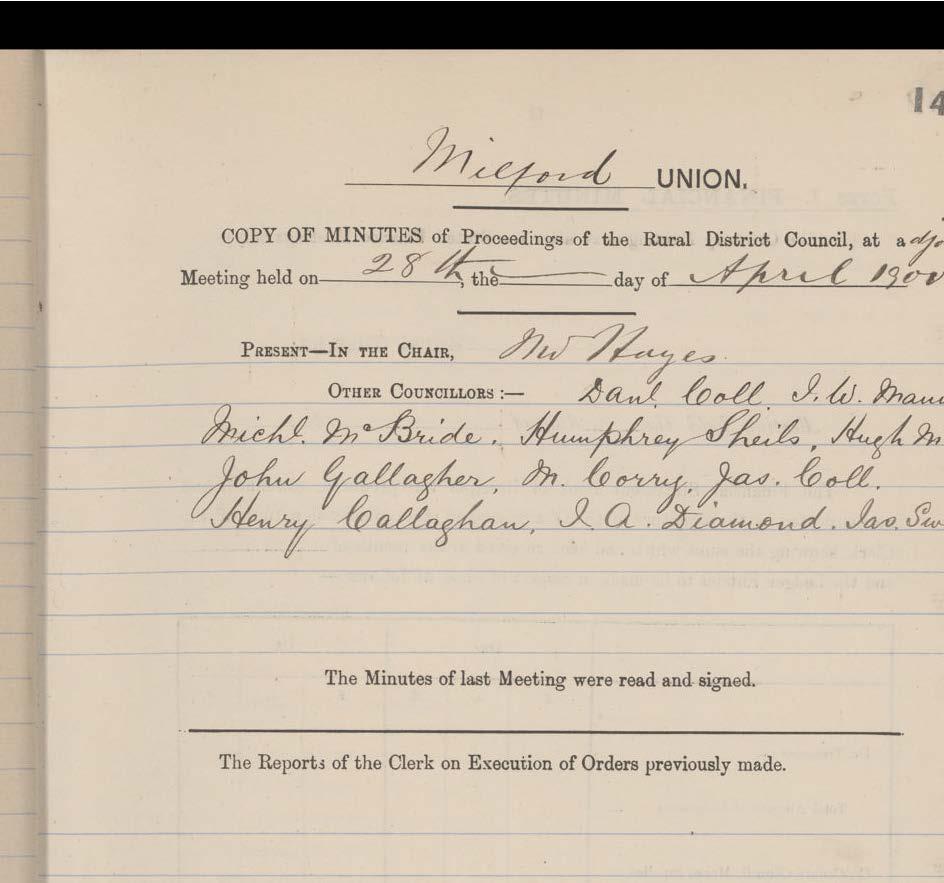 14
Milford UNION.
COPY OF MINUTES of Proceedings of the Rural District Council, at a
Meeting held on 28th, the day of April
PRESENT—IN THE CHAIR, Mr Hayes.
OTHER COUNCILLORS :— Danl. Coll I. W.
Michl. McBride. Humphrey Sheils, Hugh
John Gallagher, M. Corry, Jas. Coll.
Henry Callaghan, I. A. Diamond. Jas.
The Minutes of last Meeting were read and signed.
The Reports of the Clerk on Execution of Orders previously made.